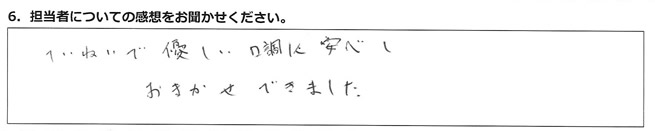 6. 担当者についての感想をお聞かせください。
ていねいで優しい口調に安心し
おまかせできました。